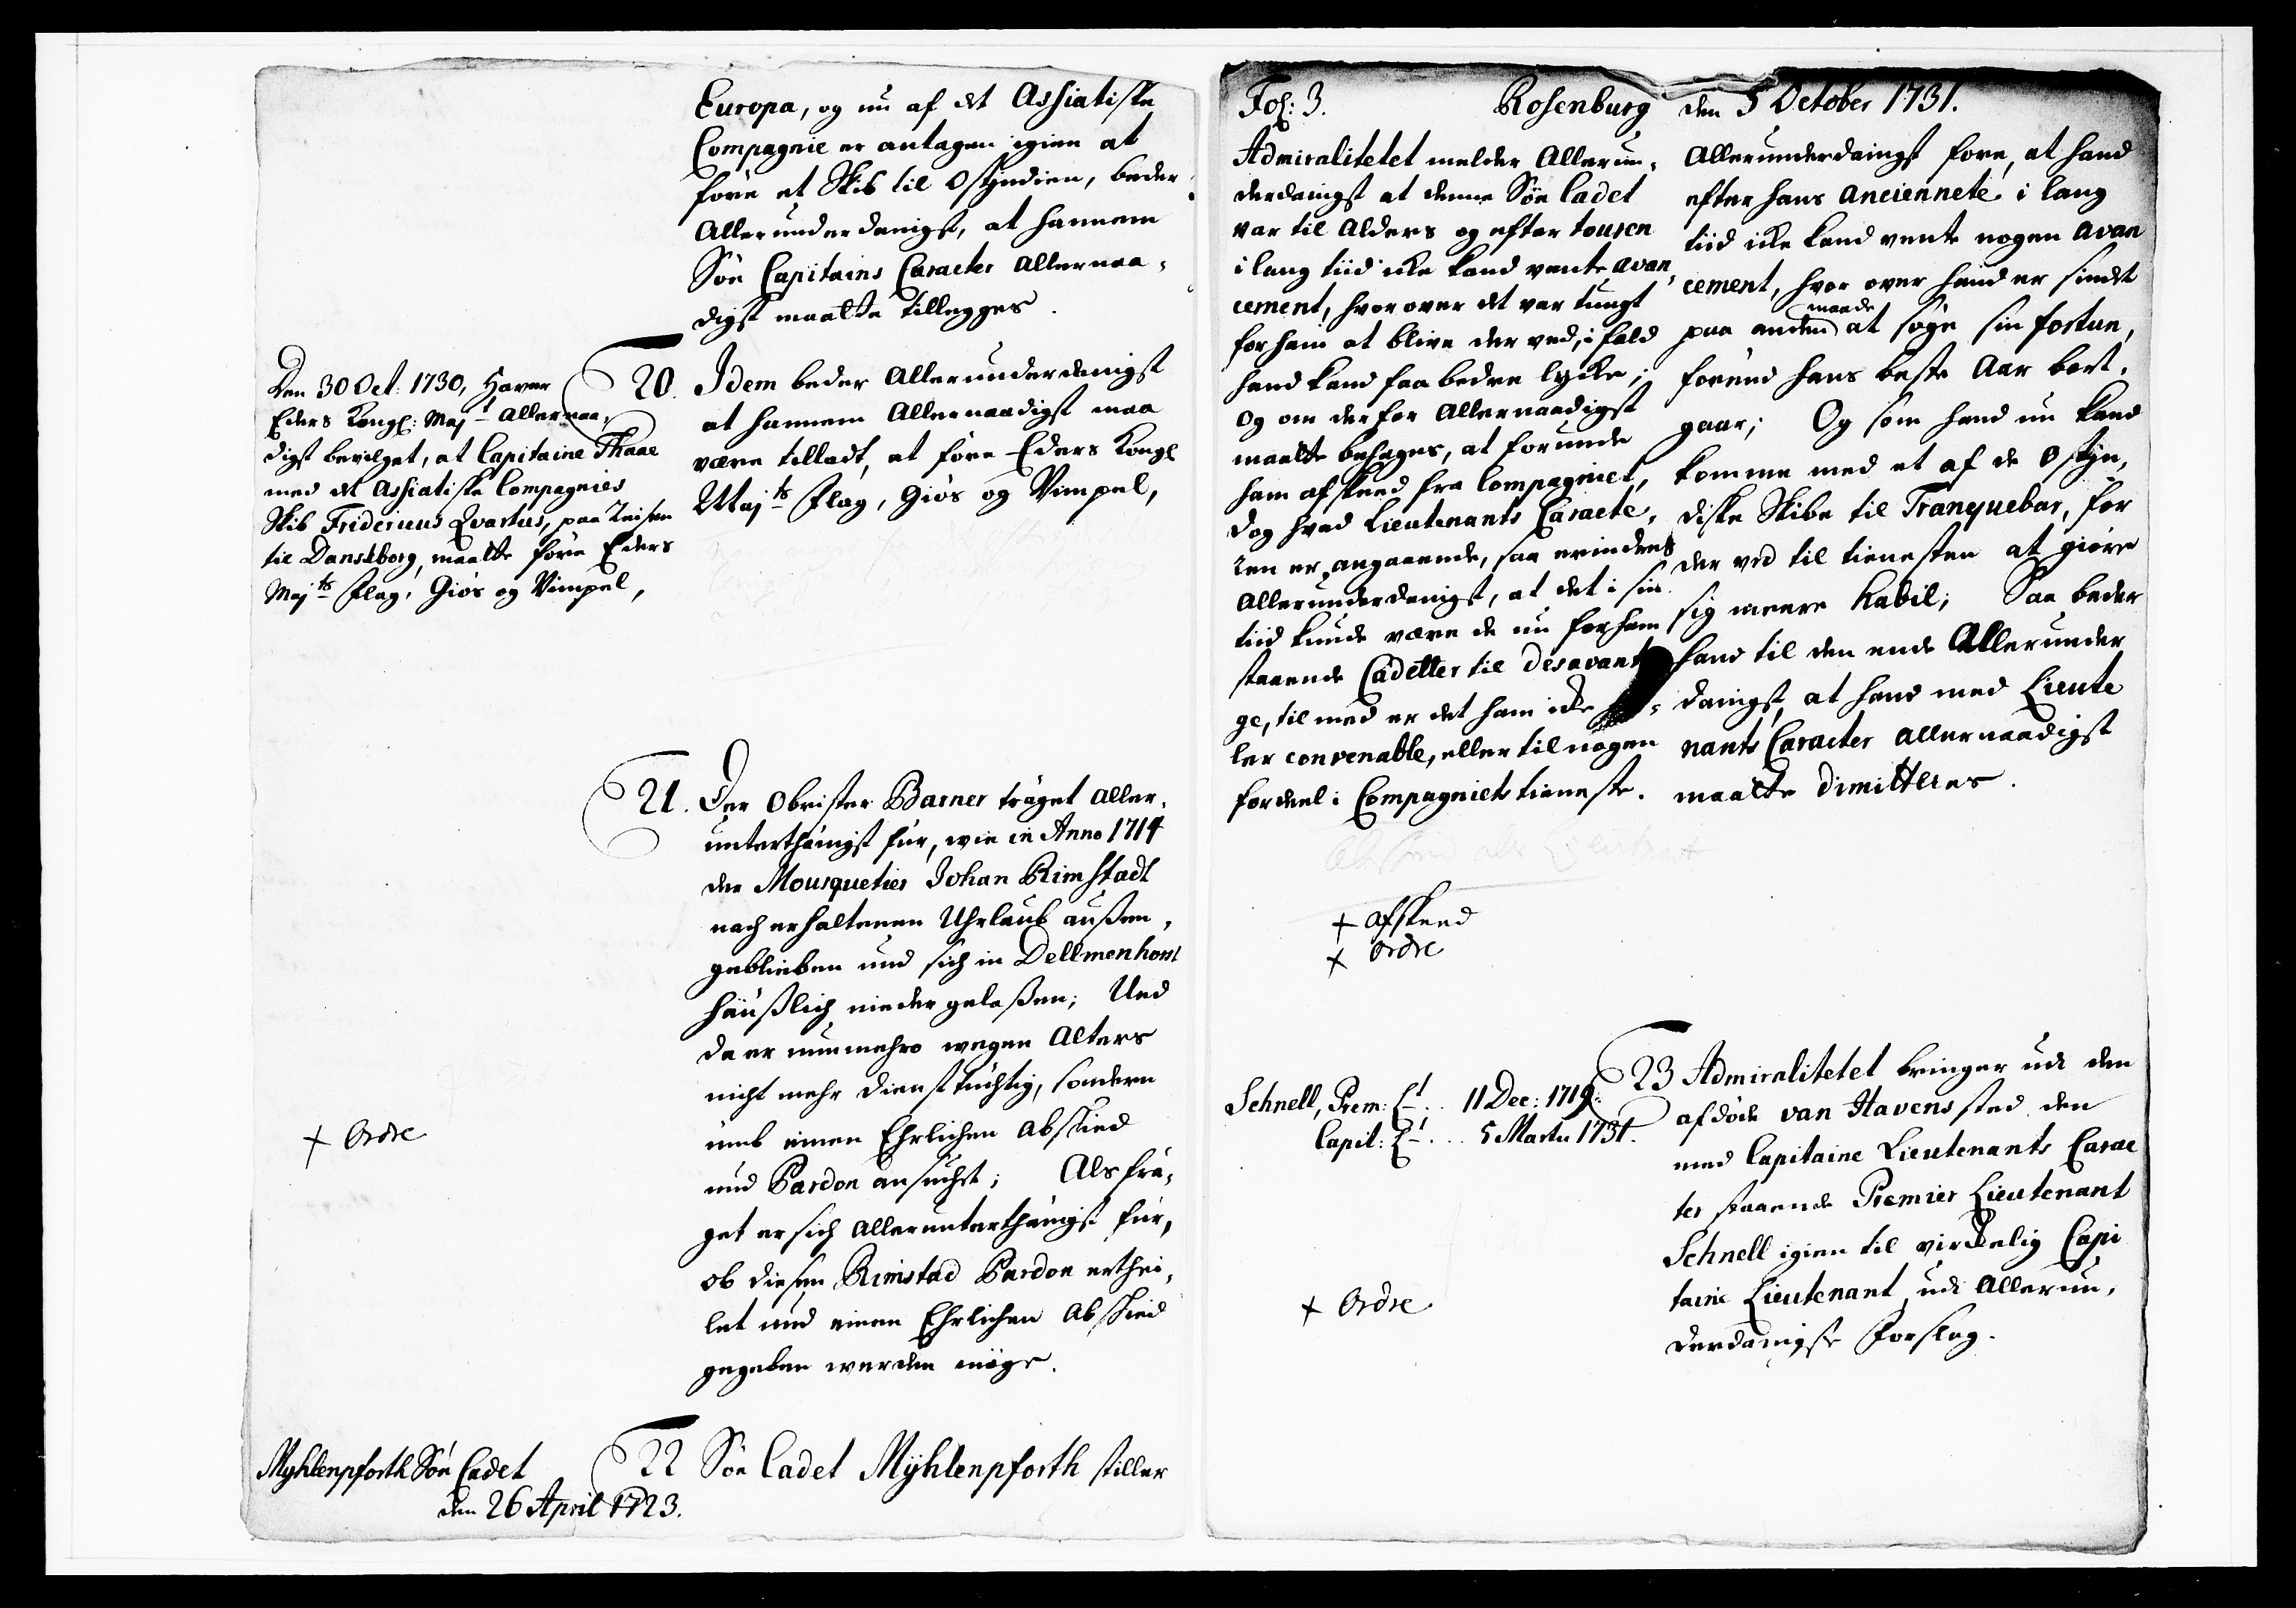 Europa, og nu af det Assiatiske
Compagnie er antagen igien at
före et Skib til Ostjndien, beder
Allerunderdanigst, at hannem
Söe Capitains Caracter allernaa-
digst maatte tillegges.
Den 30 Oct: 1730, Haver
Eders Kongl: Majt allernaa-
digst bevilget, at Capitaine Thaae
med det Assiatiske Compagnies
Skib Fridericus Qvartus, paa Reisen
til Dansborg, maatte före Eders
Majts Flag, Giös og Vimpel,
20. Idem beder Allerunderdanigst
at hannem Allernaadigst maa
være tilladt, at före Eders Kongl
Majts Flag, Giös og Vimpel,
21. Der Obrister Barner träget aller-
unterthänigst für, wie in Anno 1714
der Mousquetier Johan Rimstadt
nach erhaltenen Uhrlaub außen-
geblieben und sich in Dellmenhorst
häußlich nieder gelaßen; Und
da er nunmehro wegen Alters
nicht mehr diensttüchtig, sondern
umb einen Ehrlichen Abschied
und Pardon ansucht; Als frä-
get er sich allerunterthänigst für,
ob diesen Rimstad Pardon erthei-
let und einen Ehrlichen Abschied
gegeben werden möge.
+ Ordre
Myhlenpforth Söe Cadet
den 26 April 1723.
22 Söe Cadet Mÿhlenpforth stiller
Fol: 3. Rosenburg den 5 October 1731.
Admiralitetet melder Allerun-
derdanigst at denne Söe Cadet
var til Alders og efter touren
i lang tiid icke kand vente avan-
cement, hvor over det var tungt
for ham at blive der ved, i fald
hand kand faa bedre lycke;
Og om der for Allernaadigst
maatte behages, at forunde
ham afskeed fra Compagniet,
Dog hvad Lieutenants Caracte-
ren er angaaende, saa erindres
Allerunderdanigst, at det i sin
tiid kunde være de nu for ham
staaende Cadetter til desavanta
ge, til med er det ham icke
ler convenable, eller til nogen
fordeel i Compagniets tieneste.
+ Afskeed
+ Ordre
Allerunderdanigst fore, at hand
efter hans anciennete i lang
tiid icke kand vente nogen avan
cement, hvor over hand er sindet
paa anden maade at söge sin fortun,
forend hans beste Aar bort-
gaar; Og som hand nu kand
komme med et af de Ostjn-
diske Skibe til Tranquebar, for
der ved til tienesten at giöre
sig meere habil; Saa beder
hand til den ende Allerunder
danigst, at hand med Lieute
nants Caracter allernaadigst
maatte dimitteres.
Schnell, Prem: Lt. .. 11 Dec: 1719.
Capit: Lt. ... 5 Martii 1731.
+ Ordre
23 Admiralitetet bringer udi den
afdöde van Havens sted den
med Capitaine Lieutenants Carac
ter staaende Premier Lieutenant
Schnell igien til virkelig Capi
taine Lieutenant udi allerun-
derdanigste Forslag.